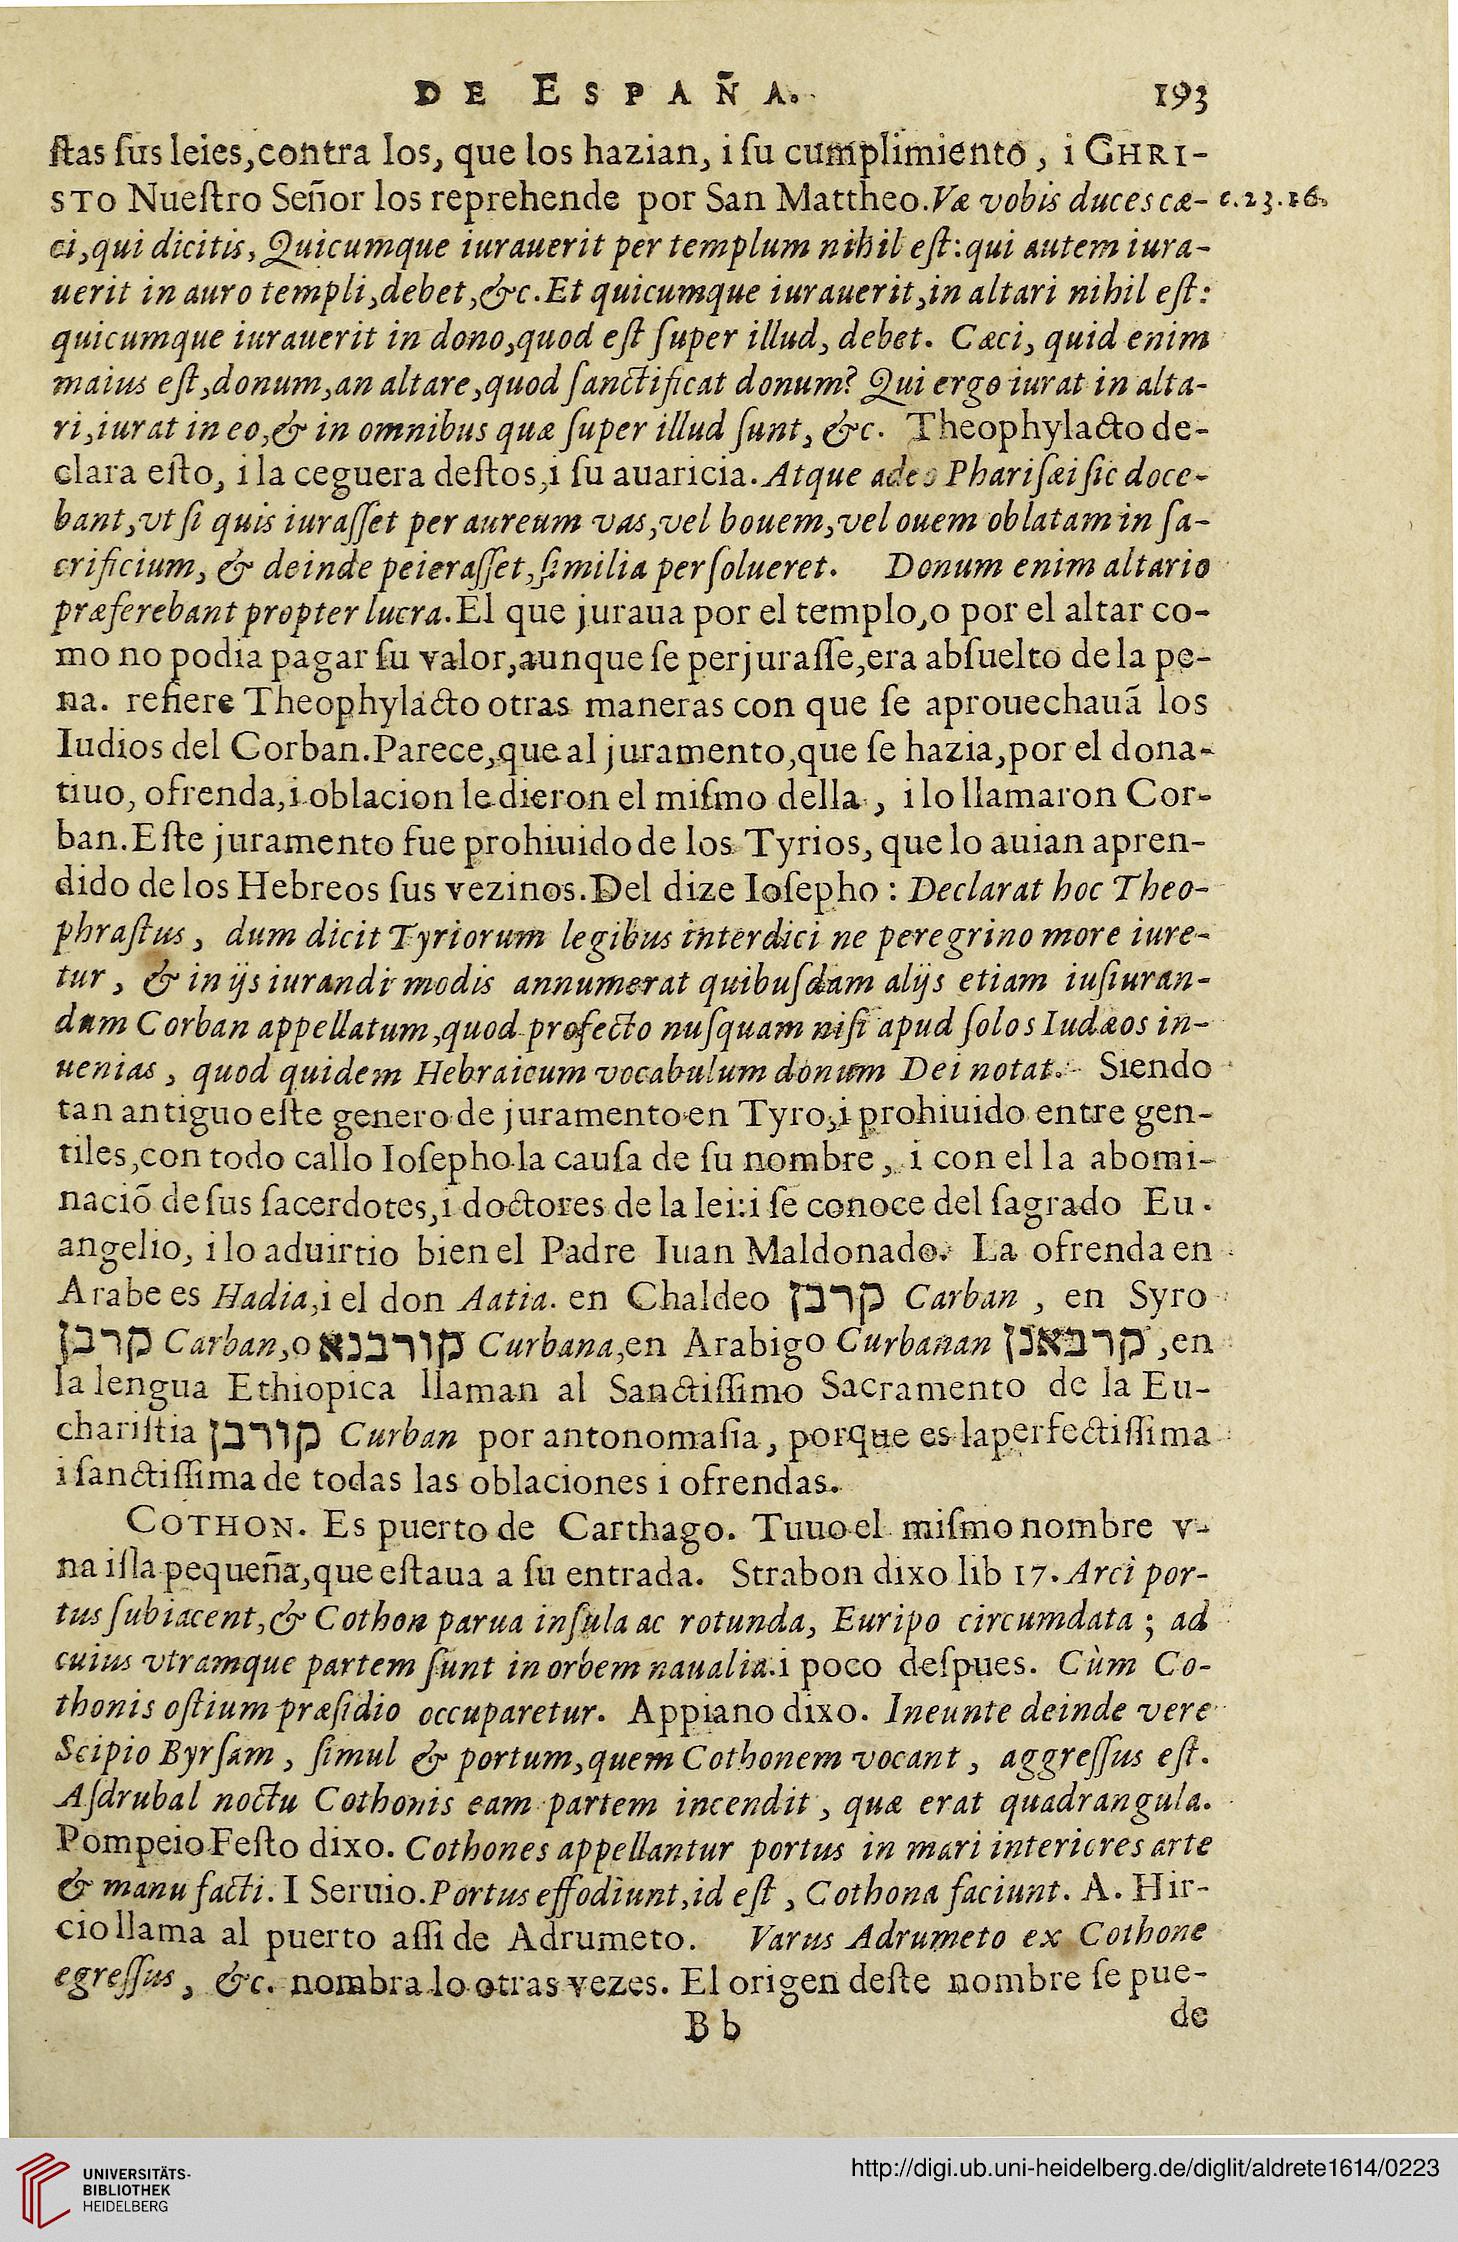 DE ESPAÑA. 193
ſtas ſus leies,contra los, que los hazian, i ſu cumplimiento, i CHRI-
STO Nueſtro Señor los reprehende por San Mattheo.Væ vobis duces cæ- c.23.16.
ci,qui dicitis, Quicumque iurauerit per templum nihil eſt:qui autem iura-
uerit in auro templi,debet,&c.Et quicumque iurauerit,in altari nihil eſt:
quicumque iurauerit in dono,quod eſt ſuper illud, debet. Cæci, quid enim
maius eſt,donum,an altare,quod ſanctificat donum? Qui ergo iurat in alta-
ri,iurat in eo,& in omnibus quæ ſuper illud ſunt, &c. Theophylacto de-
clara eſto, i la ceguera deſtos,i ſu auaricia.Atque adeo Phariſæi ſic doce-
bant,vt ſi quis iuraſſet per aureum vas,vel bouem,vel ouem oblatam in ſa-
crificium, & deinde peieraſſet,ſimilia perſolueret. Donum enim altario
præferebant propter lucra.El que juraua por el templo,o por el altar co-
mo no podia pagar ſu valor,aunque ſe perjuraſſe,era abſuelto de la pe-
na. refiere Theophylacto otras maneras con que ſe aprouechauã los
Iudios del Corban.Parece,que al juramento,que ſe hazia,por el dona-
tiuo, ofrenda,i oblacion le dieron el miſmo della, i lo llamaron Cor-
ban.Eſte juramento fue prohiuido de los Tyrios, que lo auian apren-
dido de los Hebreos ſus vezinos.Del dize Ioſepho : Declarat hoc Theo-
phraſtus, dum dicit Tyriorum legibus interdici ne peregrino more iure-
tur, & in ijs iurandi modis annumerat quibuſdam alijs etiam iuſiuran-
dum Corban appellatum,quod profecto nuſquam niſi apud ſolos Iudæos in-
uenias, quod quidem Hebraicum vocabulum donum Dei notat. Siendo
tan antiguo eſte genero de juramento en Tyro,i prohiuido entre gen-
tiles,con todo callo Ioſepho la cauſa de ſu nombre, i con el la abomi-
naciõ de ſus ſacerdotes,i doctores de la lei:i ſe conoce del ſagrado Eu-
angelio, i lo aduirtio bien el Padre Iuan Maldonado. La ofrenda en
Arabe es Hadia,i el don Aatia. en Chaldeo קרבן Carban, en Syro
קרבן Carban,o קורבנא Curbana,en Arabigo Curbanan קרבאנן ,en
la lengua Ethiopica llaman al Sanctiſſimo Sacramento de la Eu-
chariſtia קורבן Curban por antonomaſia, porque es la perfectiſſima
i ſanctiſſima de todas las oblaciones i ofrendas.
COTHON. Es puerto de Carthago. Tuuo el miſmo nombre v-
na iſla pequeña,que eſtaua a ſu entrada. Strabon dixo lib 17.Arci por-
tus ſubiacent,& Cothon parua inſula ac rotunda, Euripo circumdata ; ad
cuius vtramque partem ſunt in orbem naualia.i poco deſpues. Cùm Co-
thonis oſtium præſidio occuparetur. Appiano dixo. Ineunte deinde vere
Scipio Byrſam, ſimul & portum,quem Cothonem vocant, aggreſſus eſt.
Aſdrubal noctu Cothonis eam partem incendit, quæ erat quadrangula.
Pompeio Feſto dixo. Cothones appellantur portus in mari interiores arte
& manu facti. I Seruio.Portus effodiunt,id eſt, Cothona faciunt. A. Hir-
cio llama al puerto aſſi de Adrumeto. Varus Adrumeto ex Cothone
egreſſus, &c. nombra lo otras vezes. El origen deſte nombre ſe pue-
B b de
UNIVERSITÄTS-
BIBLIOTHEK
HEIDELBERG
http://digi.ub.uni-heidelberg.de/diglit/aldrete1614/0223